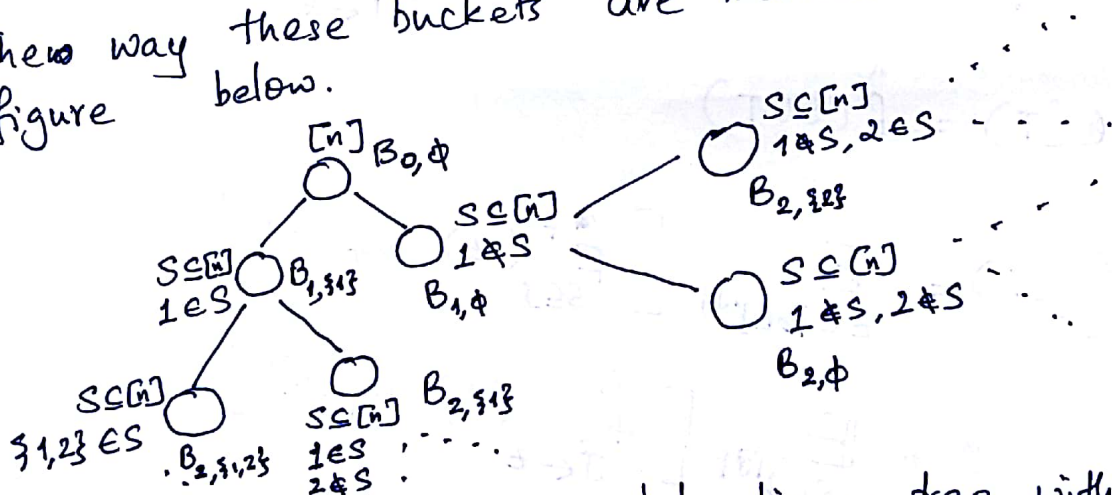 way these buckets are
figure below.
[n] B₀,ϕ
S⊆[n]
1∉S, 2∈S
B₂,{2}
S⊆[n]
1∉S
B₁,ϕ
S⊆[n]
1∈S
B₁,{1}
S⊆[n]
1∉S, 2∉S
B₂,ϕ
S⊆[n]
{1,2}∈S
B₂,{1,2}
S⊆[n]
1∈S
2∉S
B₂,{1}